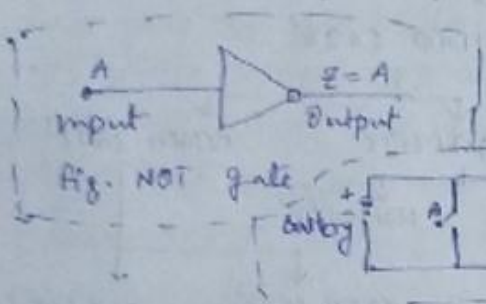 A
Z = A
Input
Output
fig. NOT gate
+
battery
A